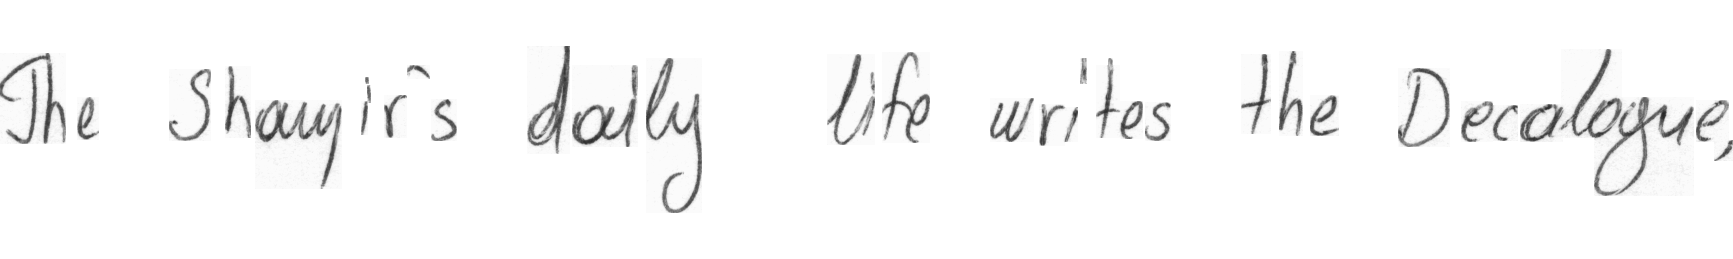 The Shayir's daily life writes the Decalogue,